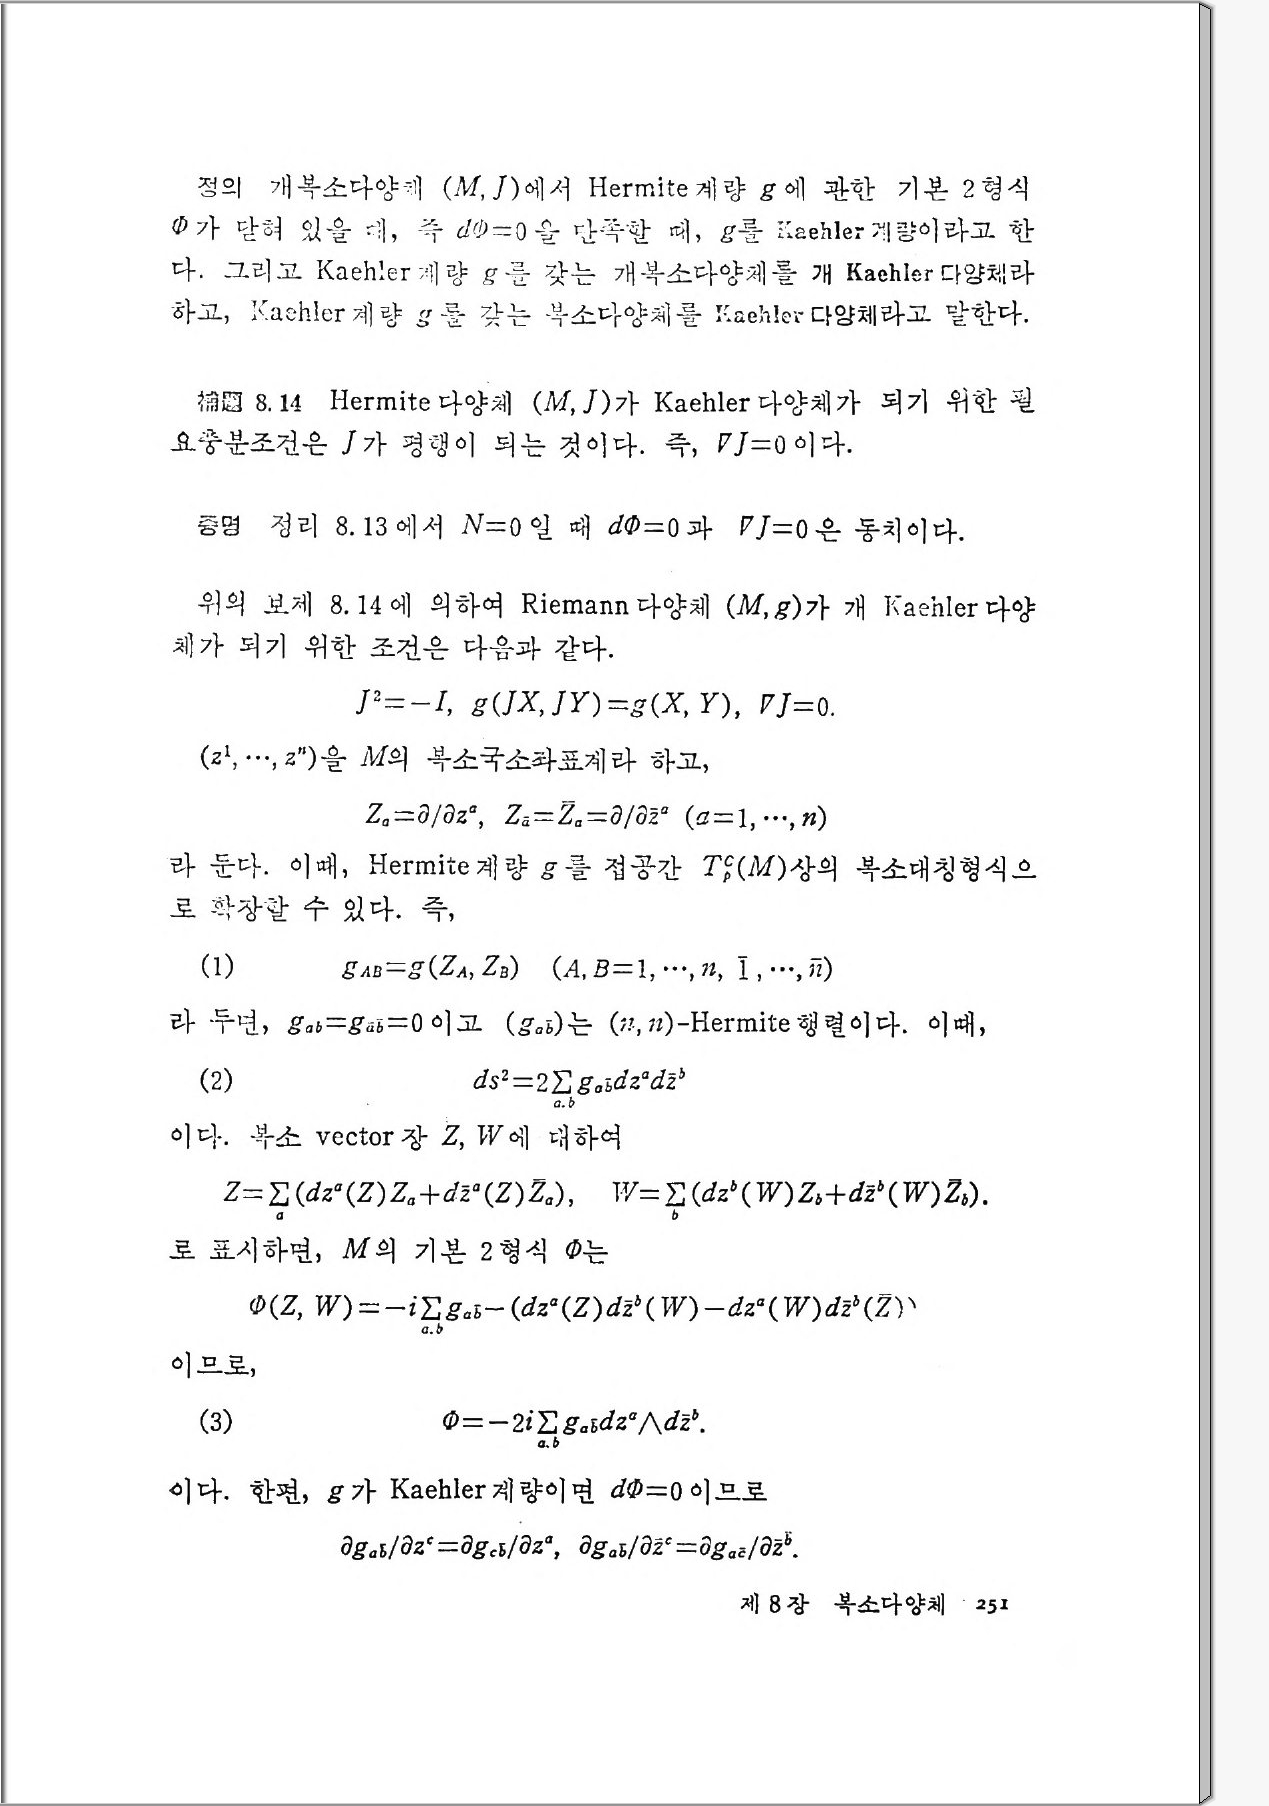 정의 개복소다양체 (M, J)에서 Hermite계량 g에 관한 기본 2형식
Φ가 닫혀 있을 때, 즉 dΦ=0을 만족할 때, g를 Kaehler계량이라고 한
다. 그리고 Kaehler계량 g를 갖는 개복소다양체를 개 Kaehler다양체라
하고, Kaehler계량 g를 갖는 복소다양체를 Kaehler다양체라고 말한다.
補題 8.14 Hermite다양체 (M, J)가 Kaehler다양체가 되기 위한 필
요충분조건은 J가 평행이 되는 것이다. 즉, ∇J=0이다.
증명 정리 8.13에서 N=0일 때 dΦ=0과 ∇J=0은 동치이다.
위의 보제 8.14에 의하여 Riemann다양체 (M, g)가 개 Kaehler다양
체가 되기 위한 조건은 다음과 같다.
J²=−I, g(JX, JY)=g(X, Y), ∇J=0.
(z¹, ⋯, zⁿ)을 M의 복소국소좌표계라 하고,
Z_a=∂/∂z^a, Z_ā=Z̄_a=∂/∂z̄^a (a=1, ⋯, n)
라 둔다. 이때, Hermite계량 g를 접공간 T_p^C(M)상의 복소대칭형식으
로 확장할 수 있다. 즉,
(1) g_{AB}=g(Z_A, Z_B) (A, B=1, ⋯, n, 1̄, ⋯, n̄)
라 두면, g_{ab}=g_{āb̄}=0이고 (g_{ab̄})는 (n, n)-Hermite행렬이다. 이때,
(2) ds²=2∑_{a.b} g_{ab̄}dz^a dz̄^b
이다. 복소 vector장 Z, W에 대하여
Z=∑_a(dz^a(Z)Z_a+dz̄^a(Z)Z̄_a), W=∑_b(dz^b(W)Z_b+dz̄^b(W)Z̄_b).
로 표시하면, M의 기본 2형식 Φ는
Φ(Z, W)=−i∑_{a.b} g_{ab̄}−(dz^a(Z)dz̄^b(W)−dz^a(W)dz̄^b(Z̄))
이므로,
(3) Φ=−2i∑_{a.b} g_{ab̄}dz^a∧dz̄^b.
이다. 한편, g가 Kaehler계량이면 dΦ=0이므로
∂g_{ab̄}/∂z^c=∂g_{cb̄}/∂z^a, ∂g_{ab̄}/∂z̄^c=∂g_{ac̄}/∂z̄^b̄.
제 8 장 복소다양체 251